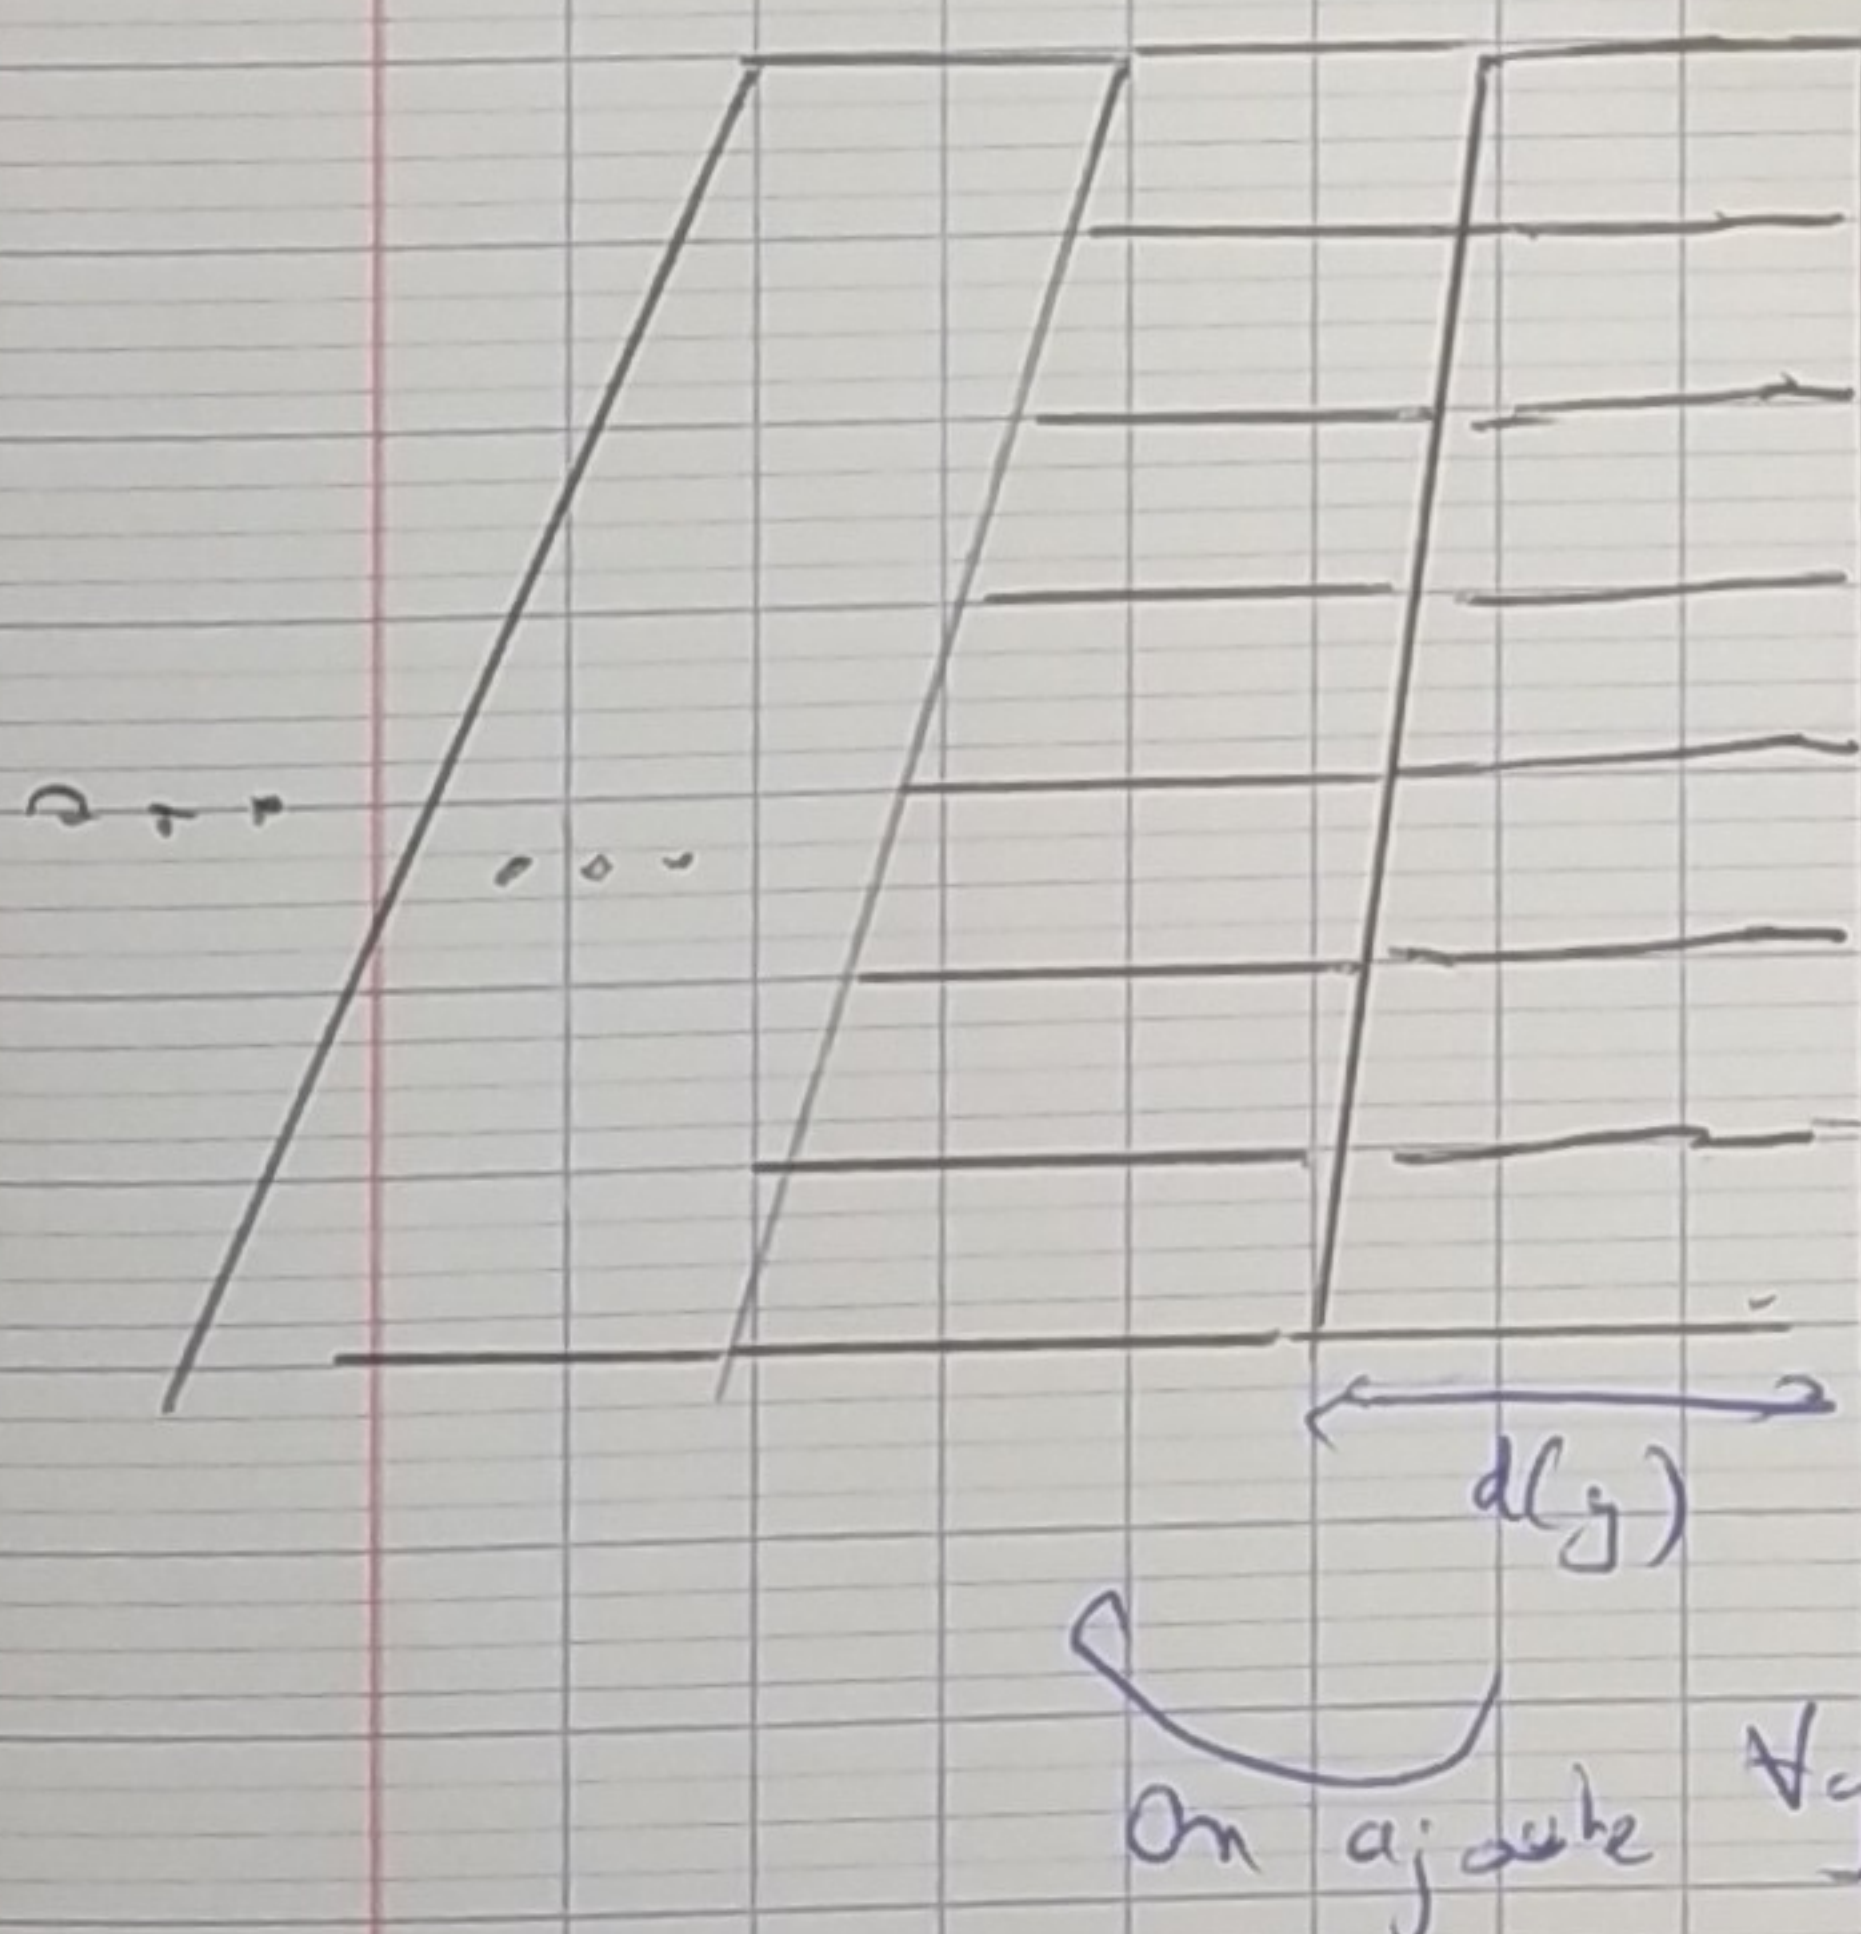 ...
...
d(y)
On ajoute ∀